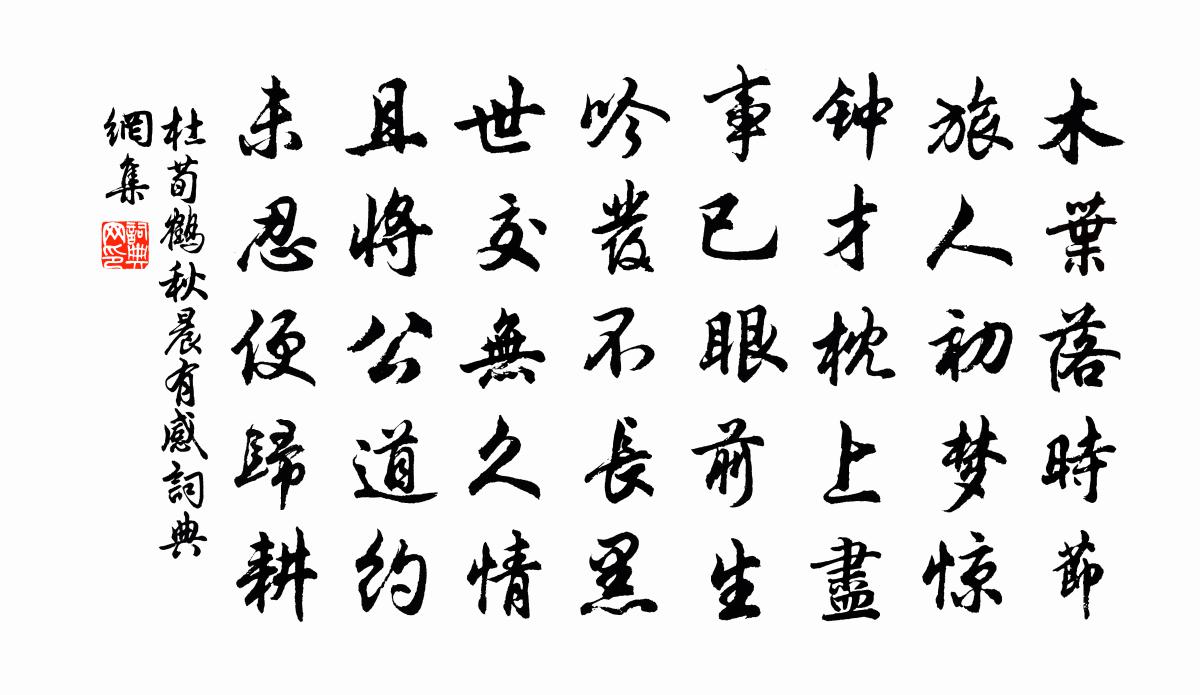 木葉落時節
旅人初梦惊
钟才枕上盡
事已眼前生
吟發不長黑
世交無久情
且將公道約
未忍便歸耕
杜荀鶴秋晨有感詞典
網集
詞典
网印